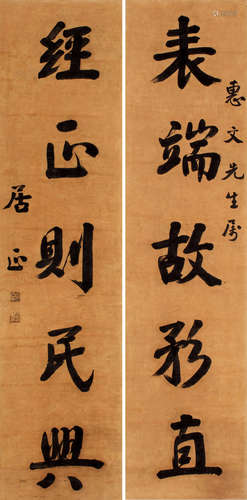 表端故影直
惠文先生属
經正則民興
居正